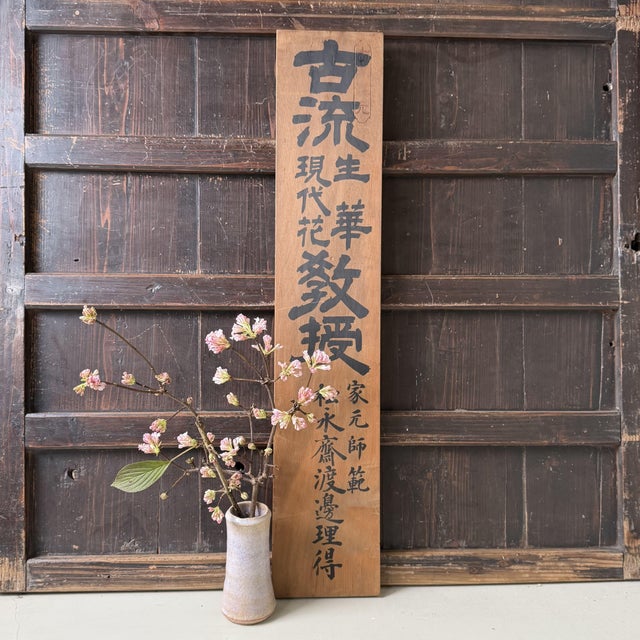 古流
生華
現代花
教授
家元師範
松永齋渡邊理得